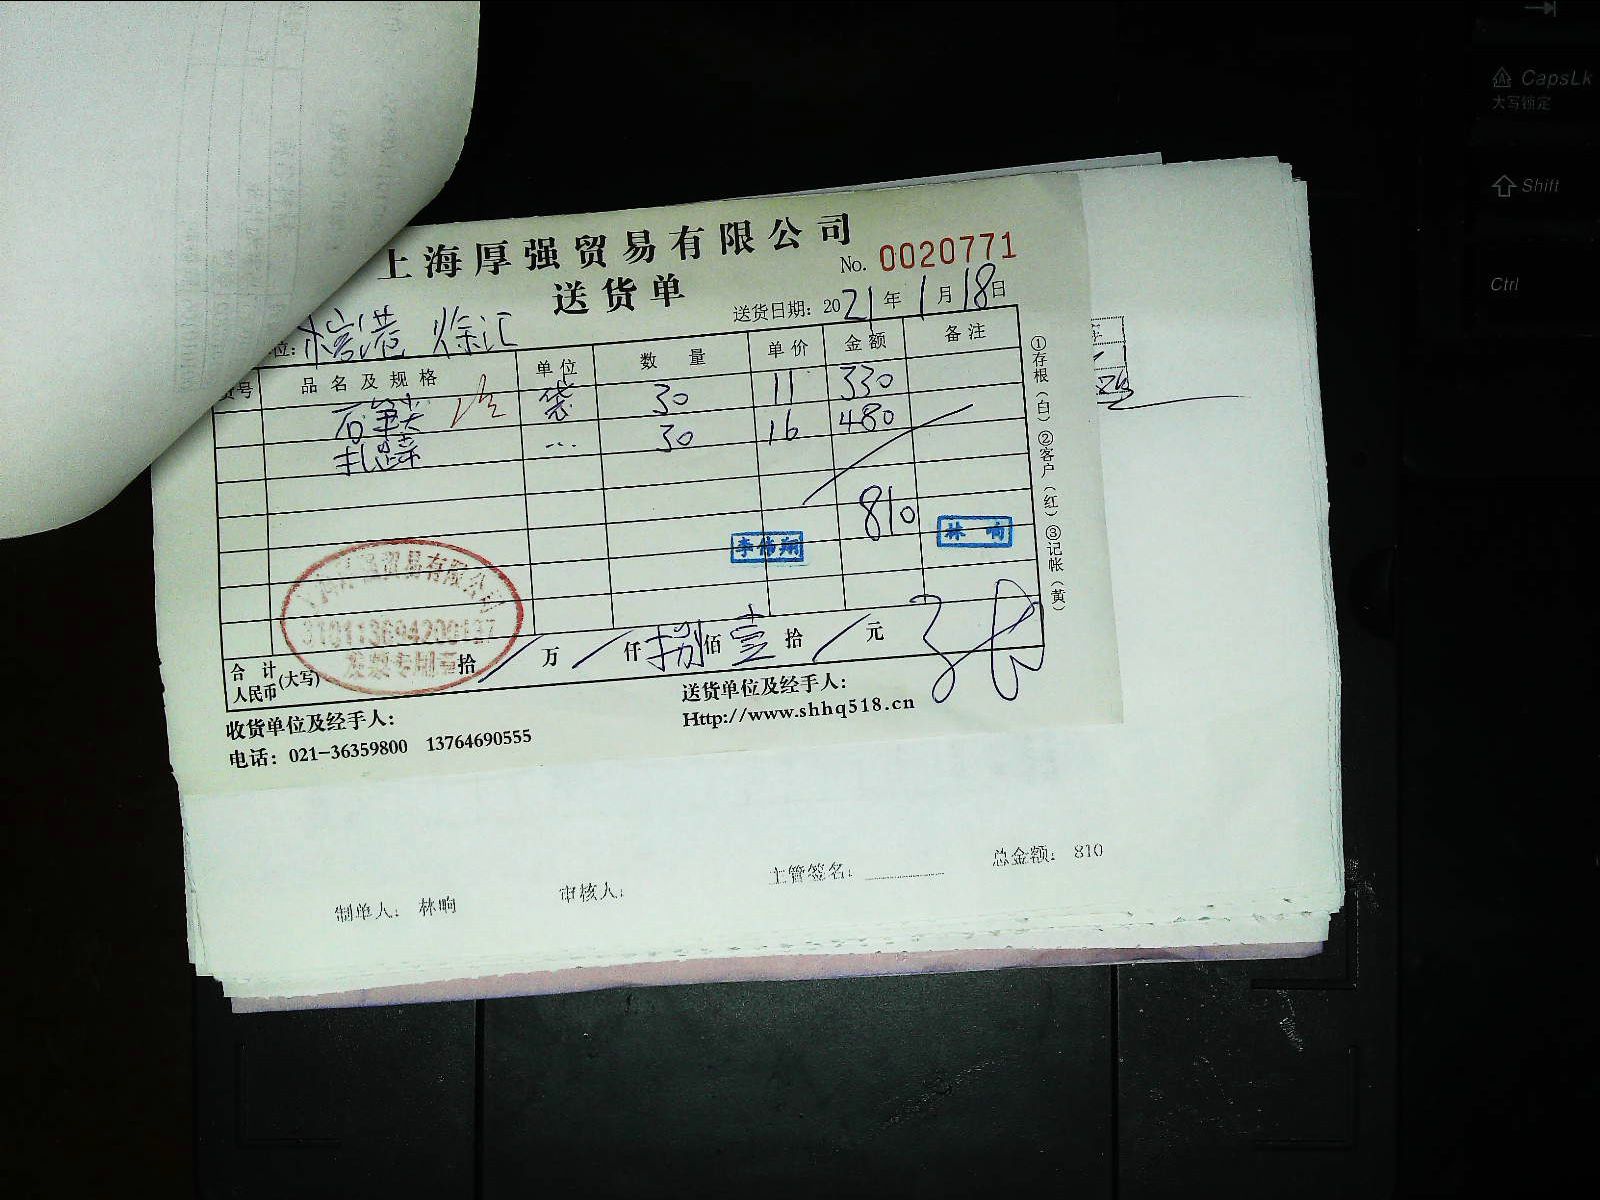 上海厚强贸易有限公司
No. 0020771
送货单
送货日期: 2021年1月18日
位: 徐汇
货号 品名及规格 单位 数量 单价 金额 备注
袋 30 11 330
30 16 480
810
李伟翔 林响
贸易有限公司
310113694200137
发票专用章
合计人民币(大写) 拾 万 仟 捌佰 壹拾 元
收货单位及经手人:
送货单位及经手人:
电话: 021-36359800 13764690555
Http://www.shhq518.cn
①存根(白) ②客户(红) ③记帐(黄)
制单人: 林响 审核人: 主管签名: 总金额: 810
CapsLk
大写锁定
Shift
Ctrl